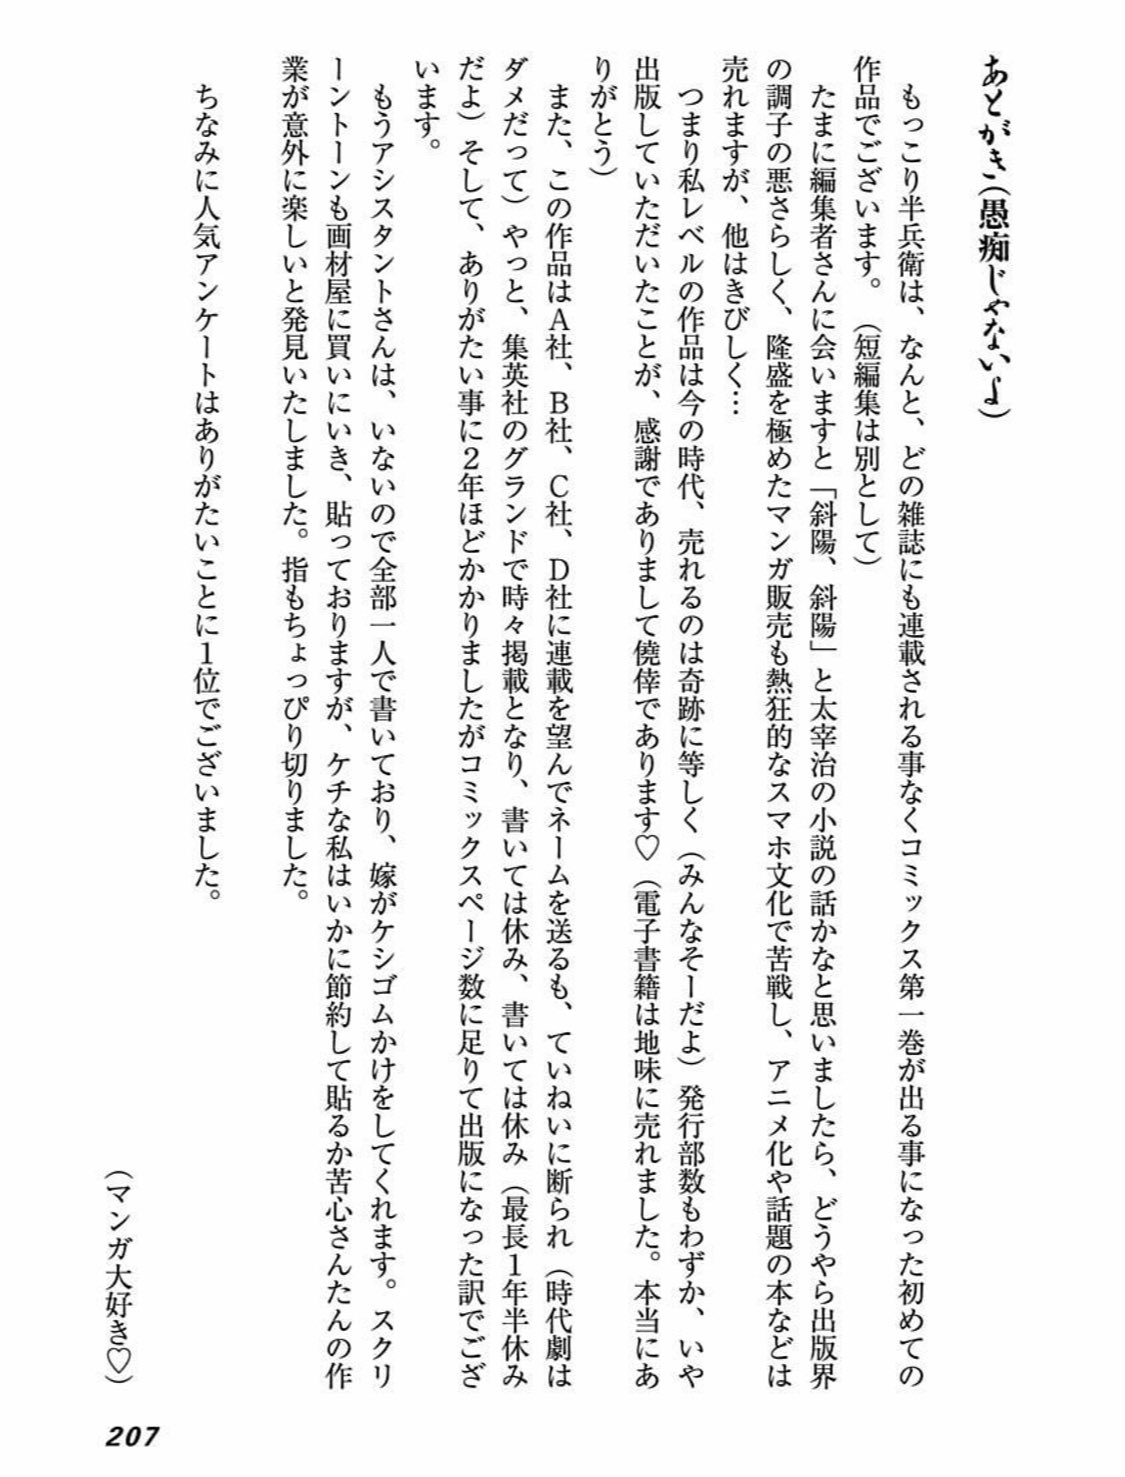 あとがき（愚痴じゃないよ）
もっこり半兵衛は、なんと、どの雑誌にも連載される事なくコミックス第一巻が出る事になった初めての
作品でございます。（短編集は別として）
たまに編集者さんに会いますと「斜陽、斜陽」と太宰治の小説の話かなと思いましたら、どうやら出版界
の調子の悪さらしく、隆盛を極めたマンガ販売も熱狂的なスマホ文化で苦戦し、アニメ化や話題の本などは
売れますが、他はきびしく…
つまり私レベルの作品は今の時代、売れるのは奇跡に等しく（みんなそーだよ）発行部数もわずか、いや
出版していただいたことが、感謝でありまして僥倖であります♡（電子書籍は地味に売れました。本当にあ
りがとう）
また、この作品はＡ社、Ｂ社、Ｃ社、Ｄ社に連載を望んでネームを送るも、ていねいに断られ（時代劇は
ダメだって）やっと、集英社のグランドで時々掲載となり、書いては休み、書いては休み（最長１年半休み
だよ）そして、ありがたい事に２年ほどかかりましたがコミックスページ数に足りて出版になった訳でござ
います。
もうアシスタントさんは、いないので全部一人で書いており、嫁がケシゴムかけをしてくれます。スクリ
ーントーンも画材屋に買いにいき、貼っておりますが、ケチな私はいかに節約して貼るか苦心さんたんの作
業が意外に楽しいと発見いたしました。指もちょっぴり切りました。
ちなみに人気アンケートはありがたいことに１位でございました。
（マンガ大好き♡）
207